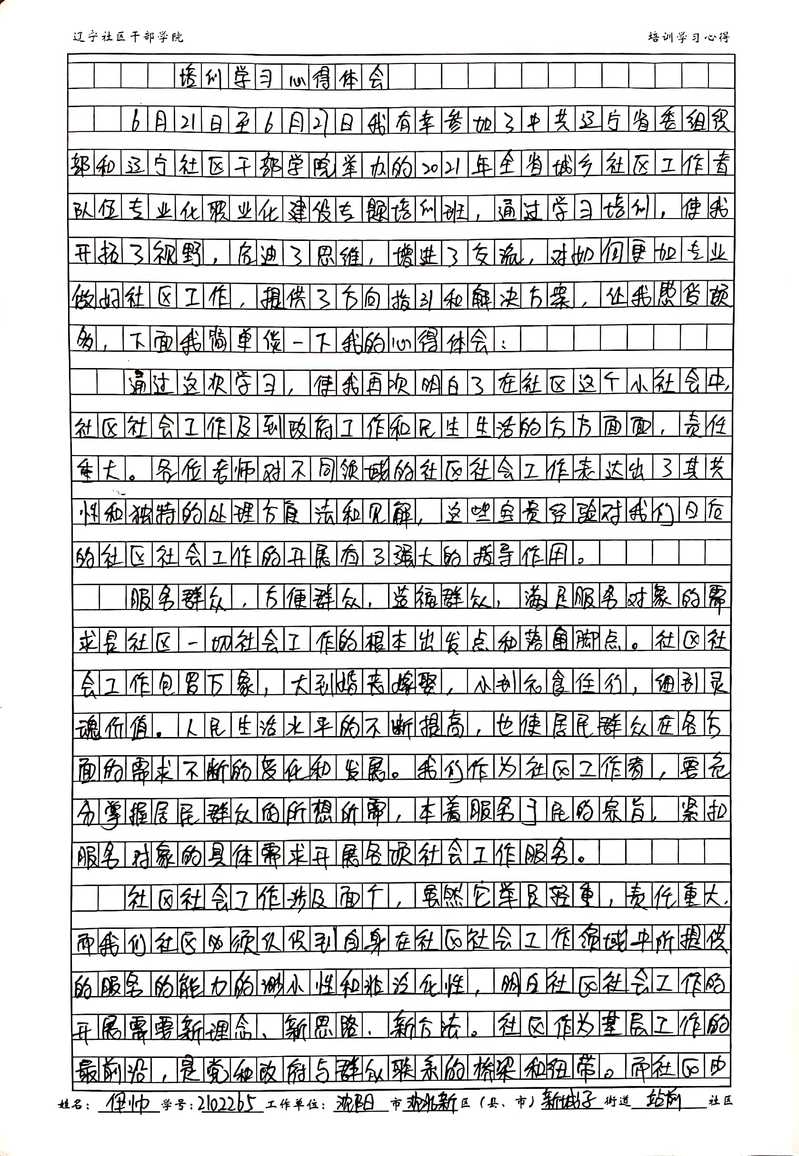 辽宁社区干部学院 培训学习心得
培训学习心得体会
6月21日至6月27日我有幸参加了中共辽宁省委组织
部和辽宁社区干部学院举办的2021年全省城乡社区工作者
队伍专业化职业化建设专题培训班，通过学习培训，使我
开拓了视野，启迪了思维，增进了交流，对如何更加专业
做好社区工作，提供了方向指引和解决方案，让我受益颇
多，下面我简单谈一下我的心得体会：
通过这次学习，使我再次明白了在社区这个小社会中，
社区社会工作及到政府工作和民生生活的方方面面，责任
重大。各位老师对不同领域的社区社会工作表达出了其共
性和独特的处理方法和见解，这些宝贵经验对我们日后
的社区社会工作的开展有了强大的指导作用。
服务群众，方便群众，造福群众，满足服务对象的需
求是社区一切社会工作的根本出发点和落脚点。社区社
会工作包罗万象，大到婚丧嫁娶，小到衣食住行，细到灵
魂价值。人民生活水平的不断提高，也使居民群众在各方
面的需求不断的变化和发展。我们作为社区工作者，要充
分掌握居民群众的所想所需，本着服务于民的宗旨，紧扣
服务对象的具体需求开展各项社会工作服务。
社区社会工作涉及面广，虽然它举足轻重，责任重大，
而我们社区必须认识到自身在社区社会工作领域中所提供
的服务的能力的渺小性和非泛化性，明白社区社会工作的
开展需要新理念、新思路、新方法。社区作为基层工作的
最前沿，是党和政府与群众联系的桥梁和纽带。而社区由
姓名：伊帅 学号：2102265 工作单位：沈阳 市 沈北新 区（县、市） 新城子 街道 站前 社区